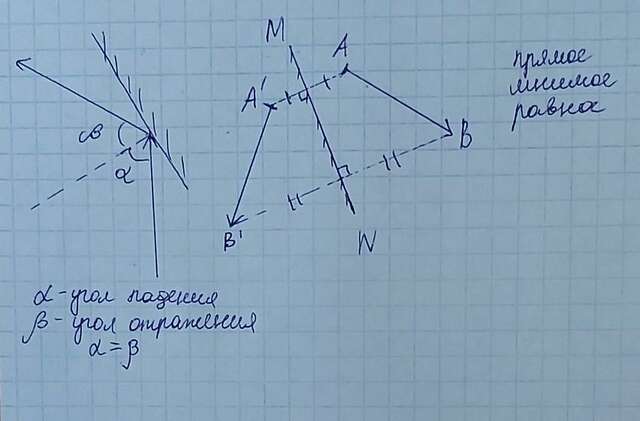 M
A
A'
B
B'
N
β
α
прямое
мнимое
равное
α - угол падения
β - угол отражения
α = β